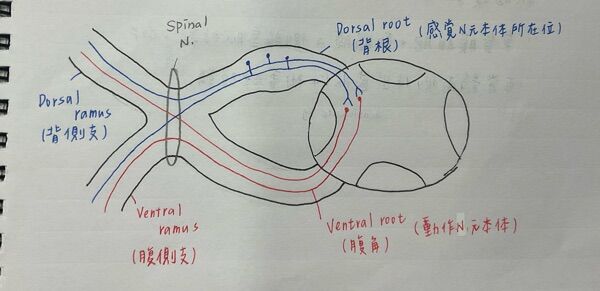 Spinal
N.
Dorsal root (感覺N.元本体所在位)
(背根)
Dorsal
ramus
(背側支)
Ventral
ramus
(腹側支)
Ventral root (動作N.元本体)
(腹角)